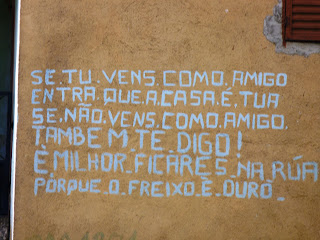 SE.TU.VENS.COMO.AMIGO
ENTRA.QUE.A.CASA.É.TUA
SE.NÃO.VENS.COMO.AMIGO.
TAMBEM.TE.DIGO!
È MILHOR.FICARES.NA.RÚA
PÓRQUE.O.FREIXO.È.DURO.